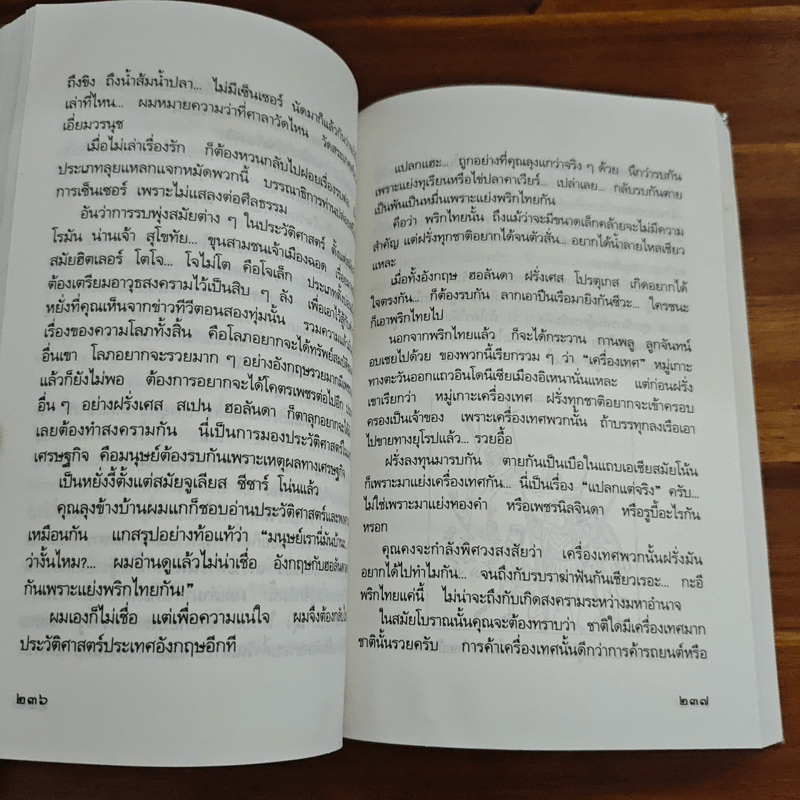 ถึงขิง ถึงน้ำส้มน้ำปลา... ไม่มีเซ็นเซอร์ นัดมาก็แล้วกัน
เล่าที่ไหน... ผมหมายความว่าที่ศาลาวัดไหน
เอี่ยมวรนุช
เมื่อไม่เล่าเรื่องรัก ก็ต้องหวนกลับไปฝอยเรื่องรบ
ประเภทลุยแหลกแจกหมัดพวกนี้ บรรณาธิการท่านปล่อย
การเซ็นเซอร์ เพราะไม่แสลงต่อศีลธรรม
อันว่าการรบพุ่งสมัยต่าง ๆ ในประวัติศาสตร์ ตั้งแต่
โรมัน น่านเจ้า สุโขทัย... ขุนสามชนเจ้าเมืองฉอด
สมัยฮิตเลอร์ โตโจ... โจไม่โต คือโจเล็ก ประเภท
ต้องเตรียมอาวุธสงครามไว้เป็นสิบ ๆ ลัง เพื่อเอาไว้
หยั่งที่คุณเห็นจากข่าวทีวีตอนสองทุ่มนั้น รวมความแล้ว
เรื่องของความโลภทั้งสิ้น คือโลภอยากจะได้ทรัพย์สมบัติ
อื่นเขา โลภอยากจะรวยมาก ๆ อย่างอังกฤษรวยมาก
แล้วก็ยังไม่พอ ต้องการอยากจะได้โคตรเพชรต่อไปอีก
อื่น ๆ อย่างฝรั่งเศส สเปน ฮอลันดา ก็ตาลุกอยากจะ
เลยต้องทำสงครามกัน นี่เป็นการมองประวัติศาสตร์ใน
เศรษฐกิจ คือมนุษย์ต้องรบกันเพราะเหตุผลทางเศรษฐกิจ
เป็นหยั่งงี้ตั้งแต่สมัยจูเลียส ซีซาร์ โน่นแล้ว
คุณลุงข้างบ้านผมแกก็ชอบอ่านประวัติศาสตร์และ
เหมือนกัน แกสรุปอย่างท้อแท้ว่า “มนุษย์เรานี่มันบ้านะ...
ว่างั้นไหม?... ผมอ่านดูแล้วไม่น่าเชื่อ อังกฤษกับฮอลันดา
กันเพราะแย่งพริกไทยกัน!”
ผมเองก็ไม่เชื่อ แต่เพื่อความแน่ใจ ผมจึงต้องกลับไป
ประวัติศาสตร์ประเทศอังกฤษอีกที
๒๓๖
แปลกแฮะ... ถูกอย่างที่คุณลุงแกว่าจริง ๆ ด้วย นึกว่ารบกัน
เพราะแย่งทุเรียนหรือไข่ปลาคาเวียร์... เปล่าเลย... กลับรบกันตาย
เป็นพันเป็นหมื่นเพราะแย่งพริกไทยกัน
คือว่า พริกไทยนั้น ถึงแม้ว่าจะมีขนาดเล็กคล้ายจะไม่มีความ
สำคัญ แต่ฝรั่งทุกชาติอยากได้จนตัวสั่น... อยากได้น้ำลายไหลเชียว
แหละ
เมื่อทั้งอังกฤษ ฮอลันดา ฝรั่งเศส โปรตุเกส เกิดอยากได้
ใจตรงกัน... ก็ต้องรบกัน ลากเอาปืนเรือมายิงกันซีวะ... ใครชนะ
ก็เอาพริกไทยไป
นอกจากพริกไทยแล้ว ก็จะได้กระวาน กานพลู ลูกจันทน์
อบเชยไปด้วย ของพวกนี้เรียกรวม ๆ ว่า “เครื่องเทศ” หมู่เกาะ
ทางตะวันออกแถวอินโดนีเซียเมืองอิเหนานั่นแหละ แต่ก่อนฝรั่ง
เขาเรียกว่า หมู่เกาะเครื่องเทศ ฝรั่งทุกชาติอยากจะเข้าครอบ
ครองเป็นเจ้าของ เพราะเครื่องเทศพวกนั้น ถ้าบรรทุกลงเรือเอา
ไปขายทางยุโรปแล้ว... รวยอื้อ
ฝรั่งลงทุนมารบกัน ตายกันเป็นเบือในแถบเอเชียสมัยโน้น
ก็เพราะมาแย่งเครื่องเทศกัน... นี่เป็นเรื่อง “แปลกแต่จริง” ครับ...
ไม่ใช่เพราะมาแย่งทองคำ หรือเพชรนิลจินดา หรือรูบี้อะไรกัน
หรอก
คุณคงจะกำลังพิศวงสงสัยว่า เครื่องเทศพวกนั้นฝรั่งมัน
อยากได้ไปทำไมกัน... จนถึงกับรบราฆ่าฟันกันเชียวเรอะ... กะอี
พริกไทยแค่นี้ ไม่น่าจะถึงกับเกิดสงครามระหว่างมหาอำนาจ
ในสมัยโบราณนั้นคุณจะต้องทราบว่า ชาติใดมีเครื่องเทศมาก
ชาตินั้นรวยครับ การค้าเครื่องเทศนั้นดีกว่าการค้ารถยนต์หรือ
๒๓๗